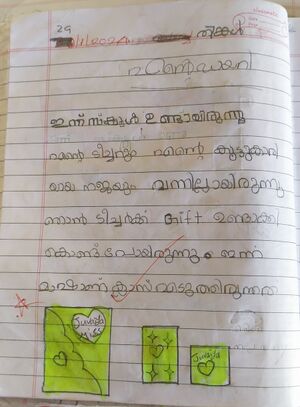 29
/1/2024 തിങ്കൾ
എന്റെ ഡയറി
ഇന്ന് സ്കൂൾ ഉണ്ടായിരുന്നു
എന്റെ ടീച്ചറും എന്റെ കൂട്ടുകാരി
യായ നജയും വന്നില്ലായിരുന്നു
ഞാൻ ടീച്ചർക്ക് Gift ഉണ്ടാക്കി
കൊണ്ട് പോയിരുന്നു. ഇന്ന്
മാഷാണ് ക്ലാസ് എടുത്തിരുന്നത്
Juvaila
Miss
Juvaila